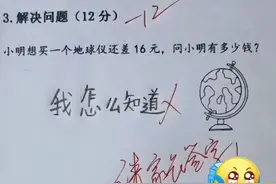 3.解决问题(12分) -12
小明想买一个地球仪还差16元,问小明有多少钱?
我怎么知道
请家长签字!